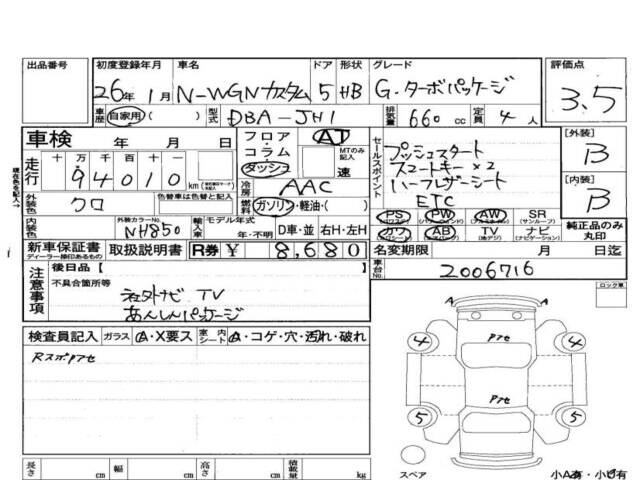 出品番号 初度登録年月 車名 ドア 形状 グレード 評価点
26年 1月 N-WGNカスタム 5 HB G・ターボパッケージ 3.5
車歴 自家用・( ) 型式 DBA-JH1 排気量 660 cc 定員 4 人
車検 年 月 日 フロア・コラム・ダッシュ AT MTのみ記入 速 セールスポイント プッシュスタート [外装] B
走行 十 万 千 百 十 一 94010 km スマートキー×2
冷房 AAC ハーフレザーシート [内装] B
外装色 クロ 色替車は色替と記入 燃料 ガソリン・軽油・( ) ETC
PS PW AW SR (サンルーフ) 純正品のみ丸印
内装色 外装カラーNo. NH850 輸入車 モデル年式 年・不明 D車・並 右H・左H カワ AB TV (地デジ) ナビ (ナビゲーション)
新車保証書 ディーラー捺印あるもの 取扱説明書 R券 ¥ 8,680 名変期限 月 日迄
注意事項 後日品【 】 車台No. 2006716
不具合箇所等 ロック車
社外ナビ TV
あんしんパッケージ
検査員記入 ガラス A・X要ス 室内シート A・コゲ・穴・汚れ・破れ
Rスポアセ
A A
アセ
4 4
アセ
5 5
長さ cm 幅 cm 高さ cm 積載量 kg
スペア 小A有・小B有
現在色を記入→